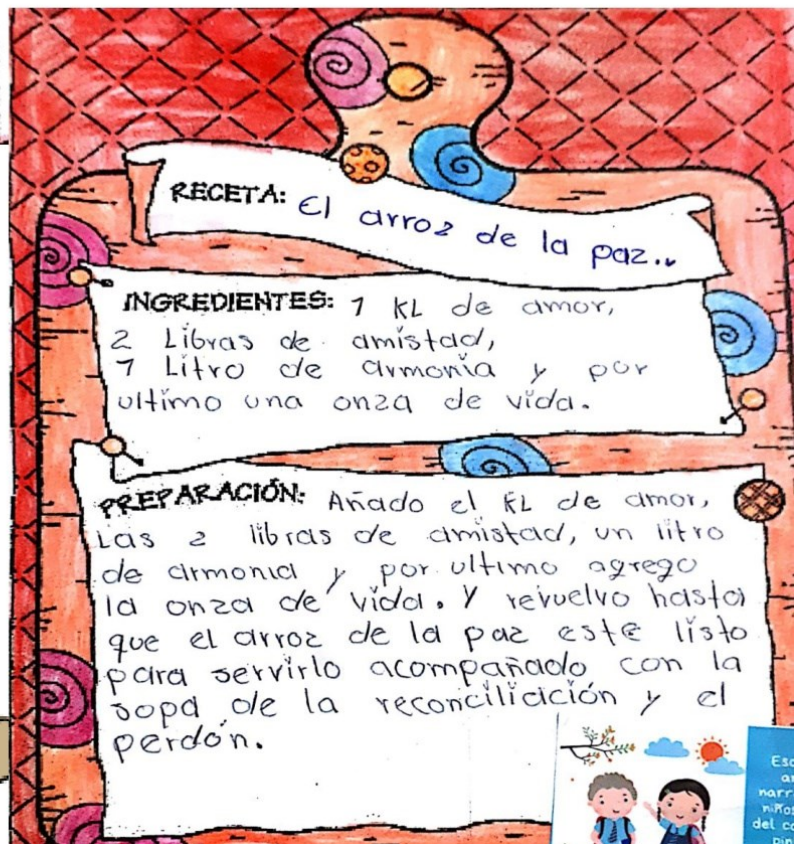 RECETA: El arroz de la paz..
INGREDIENTES: 1 KL de amor,
2 Libras de amistad,
1 Litro de armonía y por
ultimo una onza de vida.
PREPARACIÓN: Añado el KL de amor,
Las 2 libras de amistad, un litro
de armonia y por ultimo agrego
la onza de vida. Y revuelvo hasta
que el arroz de la paz este listo
para servirlo acompañado con la
sopa de la reconciliación y el
perdón.
niños